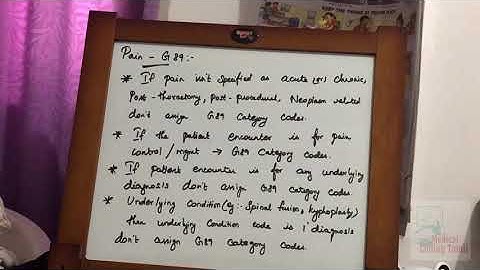 Pain - G89:-
* If pain isn't specified as acute (or) chronic,
Post-thoracotomy, post-procedural, Neoplasm related
don't assign G89 Category codes.
* If the patient encounter is for pain
control/mgmt → G89 Category codes.
* If patient encounter is for any underlying
diagnosis don't assign G89 category codes.
* Underlying condition (eg:- Spinal fusion, kyphoplasty)
then underlying condition code is 1° diagnosis
don't assign G89 category codes.
Medical
Coding Tamil